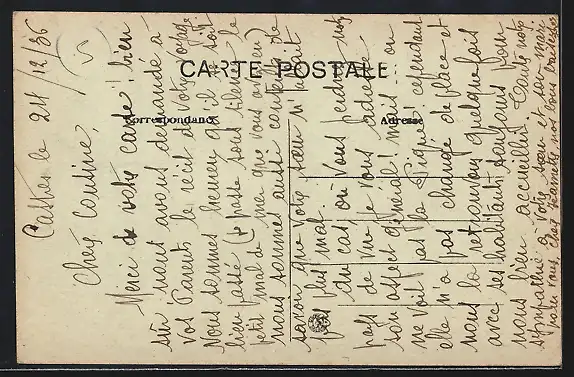 CARTE POSTALE
Correspondance
Adresse
Castre le 24/12/36
Chers Cousins,
Merci de votre carte! bien
sûr nous avons demandé à
vos Parents le récit de votre voyage
Nous sommes heureux qu'il se soit
bien passé (le passé sous silence le
petit mal de mer que vous avez eu)
nous sommes aussi content de
savoir que votre sœur n'était
pas plus mal.
du cas où vous perdrez notre
pays de vue je vous adresse
son aspect général! mais on
ne voit pas la Piquié, cependant
elle n'a pas changé de place et
nous la retrouvons quelquefois
avec ses habitants toujours pour
nous bien accueillir. Toute notre
sympathie à votre sœur et son mari
pour vous, chers
nos bons baisers